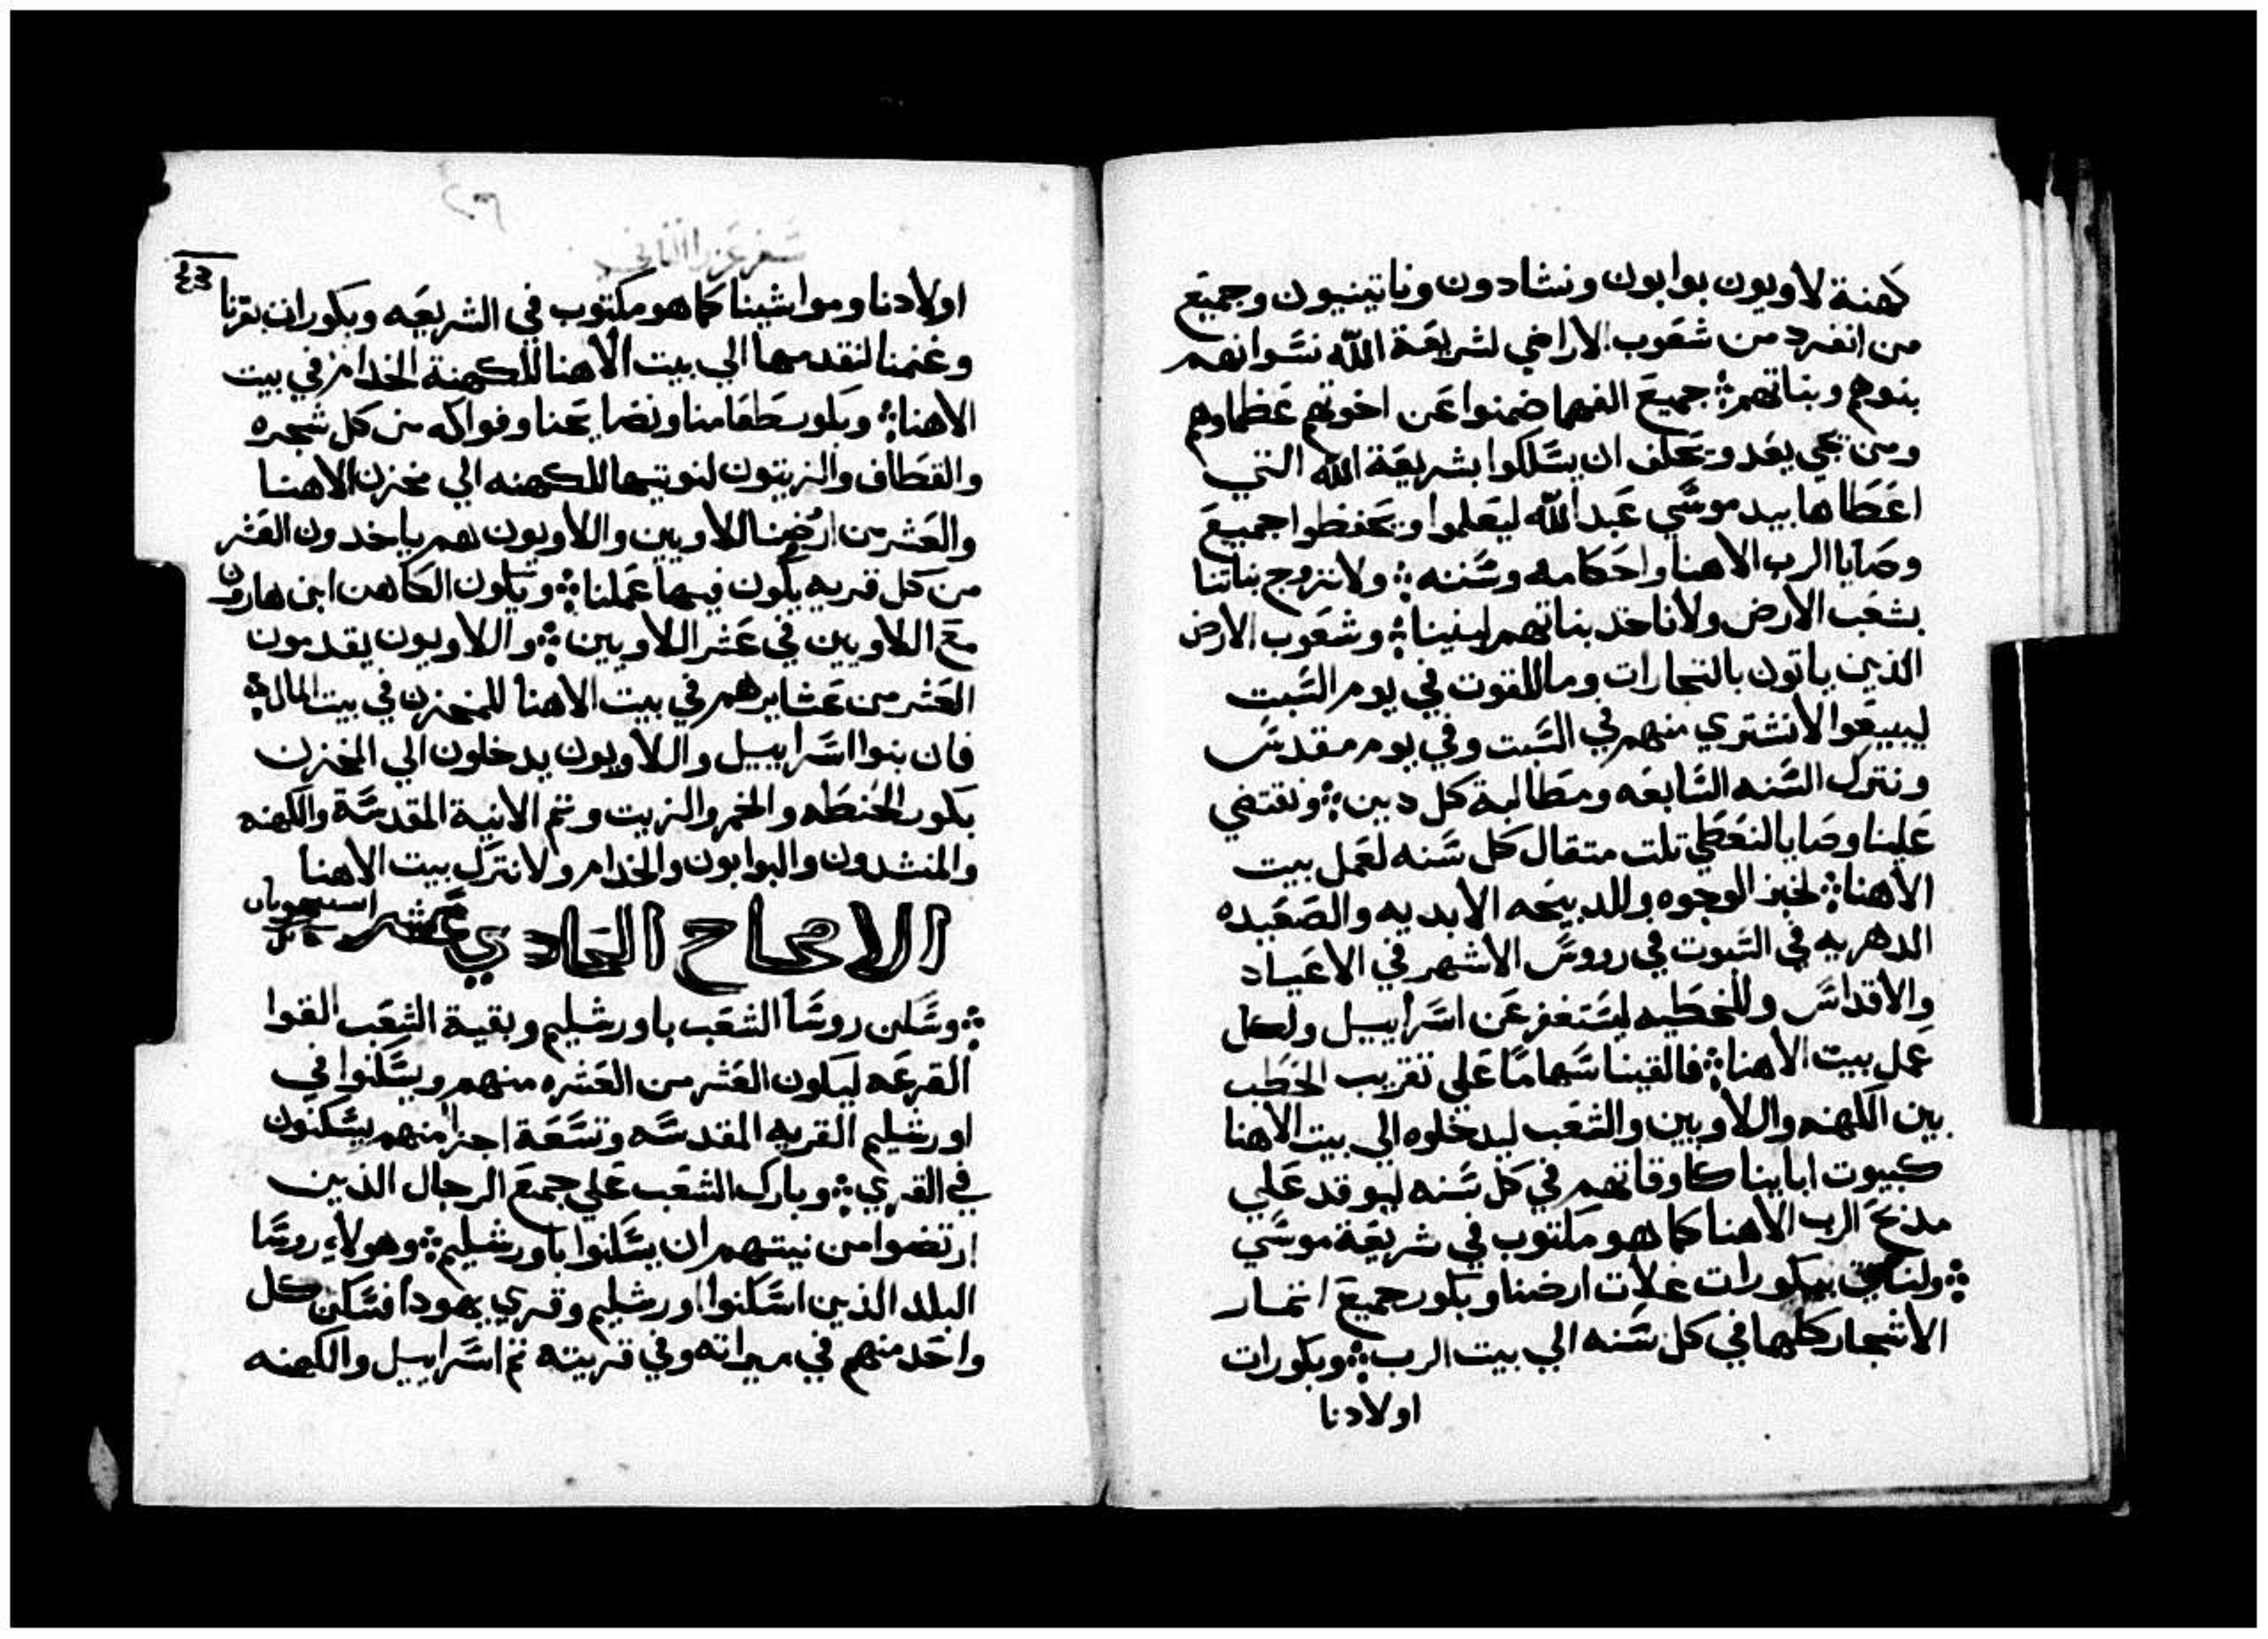 كهنة لاويون بوابون ونشادون وناتينيون وجميع
من انفرد من شعوب الاراضي لشريعة الله نسوانهم
بنوهم وبناتهم ⁘ جميع الفهما ضمنوا عن اخوتهم عظماوهم
ومن يجي يعد ويحلف ان يسلكوا بشريعة الله التي
اعطاها بيد موسي عبد الله ليعلموا ويحفظوا جميع
وصايا الرب الاهنا واحكامه وسننه ⁘ ولا نزوج بناتنا
بشعب الارض ولا ناخد بناتهم لبنينا ⁘ وشعوب الارض
الذين ياتون بالتجارات وما للقوت في يوم السبت
ليبيعوا لا نشتري منهم في السبت وفي يوم مقدس
ونترك السنه السابعه ومطالبة كل دين ⁘ ونقتضي
علينا وصايا لنعطي تلت متقال كل سنه لعمل بيت
الاهنا ⁘ لخبز الوجوه وللدبيحه الابديه والصعيده
الدهريه في السبوت في رووس الاشهر في الاعياد
والاقداس وللخطيه ليستغفر عن اسراييل ولكل
عمل بيت الاهنا ⁘ فالقينا سهاما علي تقريب الحطب
بين الكهنه واللاويين والشعب ليدخلوه الي بيت الاهنا
كبيوت اباينا كاوقاتهم في كل سنه ليوقد علي
مذبح الرب الاهنا كما هو مكتوب في شريعة موسي
⁘ ولناتي ببكورات غلات ارضنا وبكور جميع اتمار
الاشجار كلها في كل سنه الي بيت الرب ⁘ وبكورات
اولادنا
سفر عزرا الثاني
٤٣
اولادنا ومواشينا كما هو مكتوب في الشريعه وبكورات بقرنا
وغنمنا لنقدمها الي بيت الاهنا للكهنة الخدام في بيت
الاهنا ⁘ وبكور طعامنا ونضايحنا وفواكه من كل شجره
والقطاف والزيتون لنوتيها للكهنه الي مخزن الاهنا
والعشر من ارضنا للاويين واللاويون هم ياخدون العشر
من كل قريه يكون فيها عملنا ⁘ ويكون الكاهن ابن هارون
مع اللاويين في عشر اللاويين ⁘ واللاويون يقدمون
العشر من عشايرهم في بيت الاهنا للمخزن في بيت المال ⁘
فان بنوا اسراييل واللاويون يدخلون الي المخزن
بكور الحنطه والخمر والزيت وتم الانية المقدسة والكهنه
والمنشدون والبوابون والخدام ولا نترك بيت الاهنا
الاصحاح الحادي عشر
⁘ وسكن روسا الشعب باورشليم وبقية الشعب القوا
القرعه ليكون العشر من العشره منهم ويسكنوا في
اورشليم القريه المقدسه وتسعة اجزا منهم يسكنون
في القري ⁘ وبارك الشعب علي جميع الرجال الذين
ارتضوا من نيتهم ان يسكنوا باورشليم ⁘ وهولاء روسا
البلد الذين اسكنوا اورشليم وقري يهودا فسكن كل
واحد منهم في ميراته وفي قريته تم اسراييل والكهنه